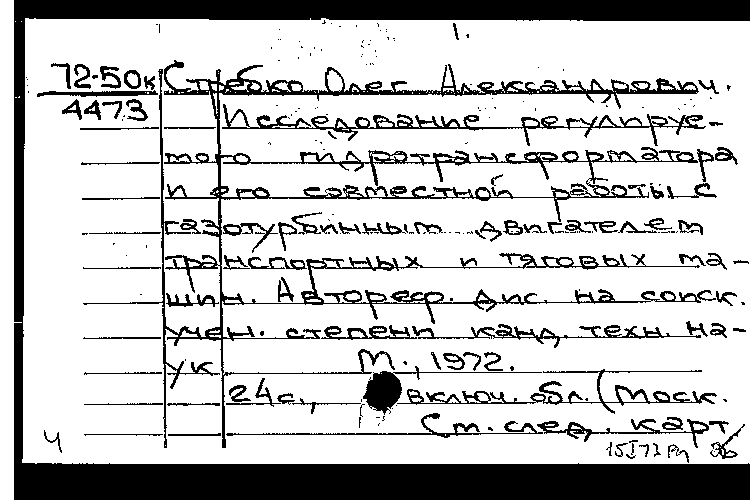 1.
72-50к Стребко Олег Александрович.
4473 Исследование регулируе-
мого гидротрансформатора
и его совместной работы с
газотурбинным двигателем
транспортных и тяговых ма-
шин. Автореф. дис. на соиск.
учен. степени канд. техн. на-
ук М., 1972.
24с., включ. обл. (Моск.
См. след. карт
Ч